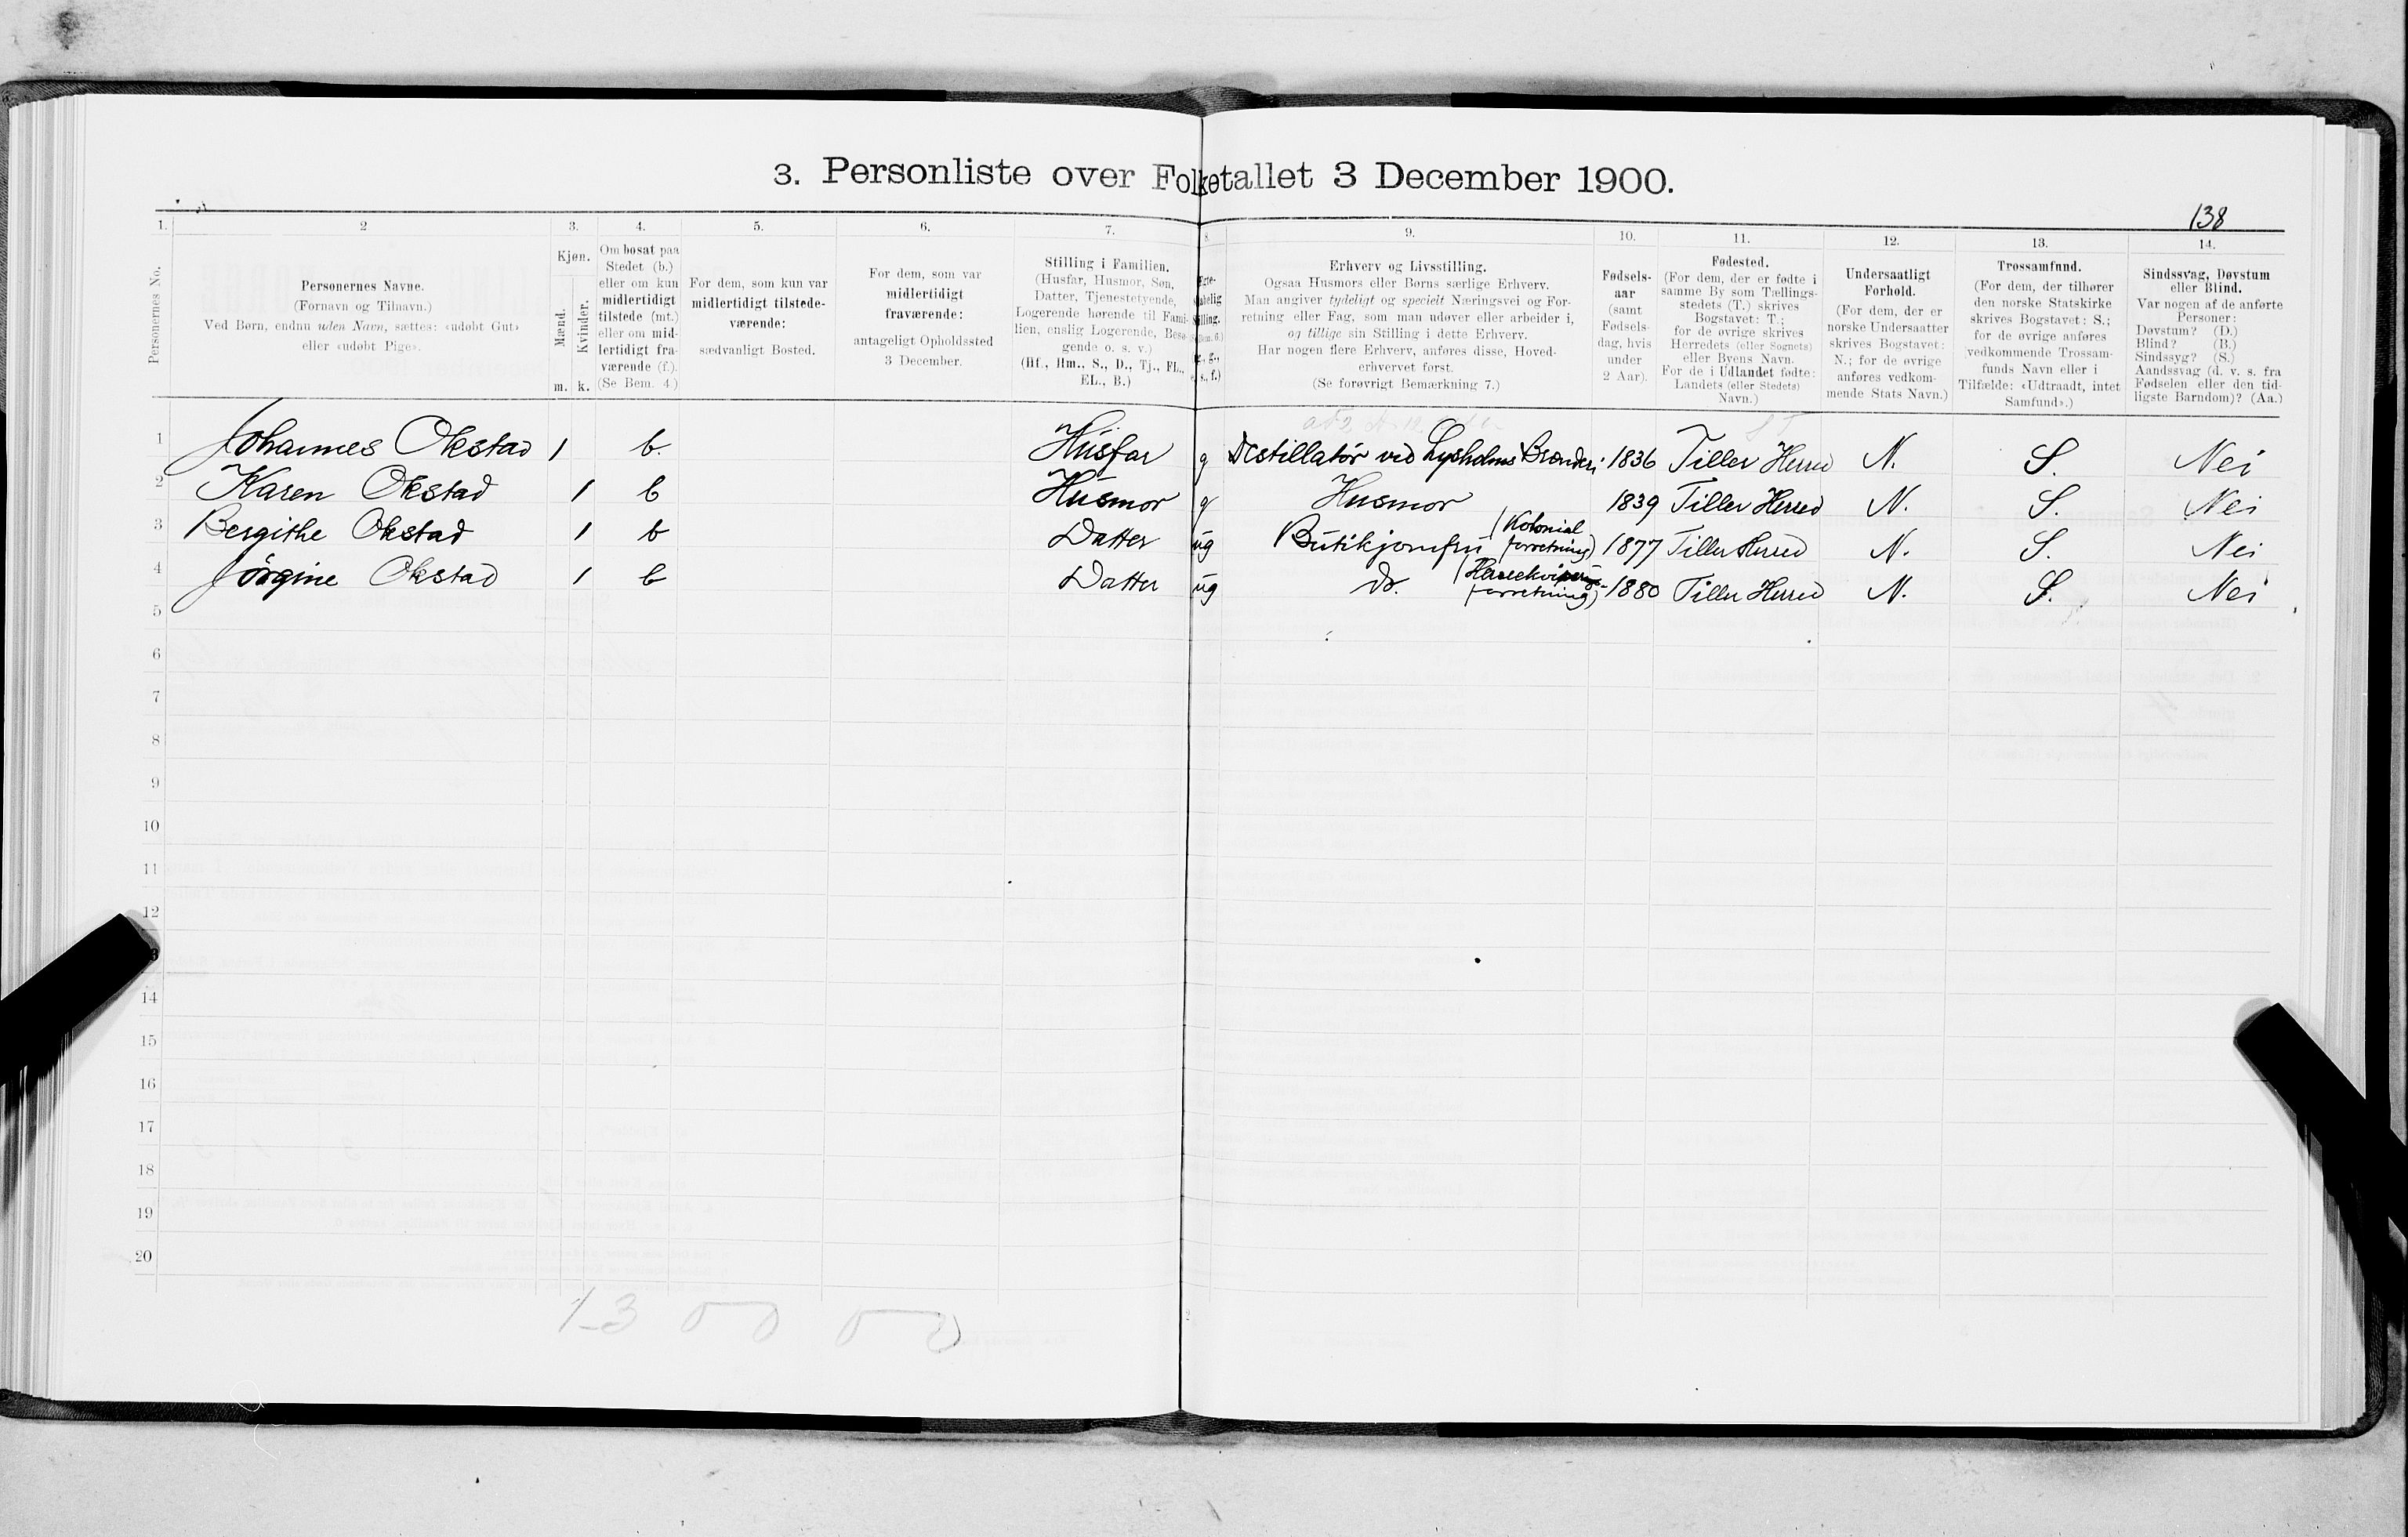 3. Personliste over Folketallet 3 December 1900.
138
1.
2
3.
4.
5.
6.
7.
8.
9.
10.
11.
12.
13.
14.
Personernes No.
Personernes Navne.
(Fornavn og Tilnavn.)
Ved Børn, endnu uden Navn, sættes: «udøbt Gut»
eller «udøbt Pige».
Kjøn.
Mænd.
Kvinder.
m. k.
Om bosat paa
Stedet (b.)
eller om kun
midlertidigt
tilstede (mt.)
eller om mid-
lertidigt fra-
værende (f.).
(Se Bem. 4.)
For dem, som kun var
midlertidigt tilstede-
værende:
sædvanligt Bosted.
For dem, som var
midlertidigt
fraværende:
antageligt Opholdssted
3 December.
Stilling i Familien.
(Husfar, Husmor, Søn,
Datter, Tjenestetyende,
Logerende hørende til Fami-
lien, enslig Logerende, Besø-
gende o. s. v.)
(Hf., Hm., S., D., Tj., FL.,
EL., B.)
Erhverv og Livsstilling.
Ogsaa Husmors eller Børns særlige Erhverv.
Man angiver tydeligt og specielt Næringsvei og For-
retning eller Fag, som man udøver eller arbeider i,
og tillige sin Stilling i dette Erhverv.
Har nogen flere Erhverv, anføres disse, Hoved-
erhvervet først.
(Se forøvrigt Bemærkning 7.)
Fødsels-
aar
(samt
Fødsels-
dag, hvis
under
2 Aar).
Fødested.
(For dem, der er fødte i
samme By som Tællings-
stedets (T.) skrives
Bogstavet: T.;
for de øvrige skrives
Herredets (eller Sognets)
eller Byens Navn.
For de i Udlandet fødte:
Landets (eller Stedets)
Navn.)
Undersaatligt
Forhold.
(For dem, der er
norske Undersaatter
skrives Bogstavet:
N.; for de øvrige
anføres vedkom-
mende Stats Navn.)
Trossamfund.
(For dem, der tilhører
den norske Statskirke
skrives Bogstavet: S.;
for de øvrige anføres
vedkommende Trossam-
funds Navn eller i
Tilfælde: «Udtraadt, intet
Samfund».)
Sindssvag, Døvstum
eller Blind.
Var nogen af de anførte
Personer:
Døvstum? (D.)
Blind? (B.)
Sindssyg? (S.)
Aandssvag (d. v. s. fra
Fødselen eller den tid-
ligste Barndom)? (Aa.)
1 Johannes Okstad 1 b. Husfar g Destillatør vid Lysholms Brænderi 1836 Tiller Herred N. S. Nei
2 Karen Okstad 1 b Husmor g Husmor 1839 Tiller Herred N. S. Nei
3 Bergithe Okstad 1 b Datter ug Butikjomfru (Kolonial forretning) 1877 Tiller Herred N. S. Nei
4 Jörgine Okstad 1 b Datter ug Do. forretning) 1880 Tiller Herred N. S. Nei
5
6
7
8
9
10
11
12
3
14
15
16
17
18
19
20
1-3 0 0 0 0